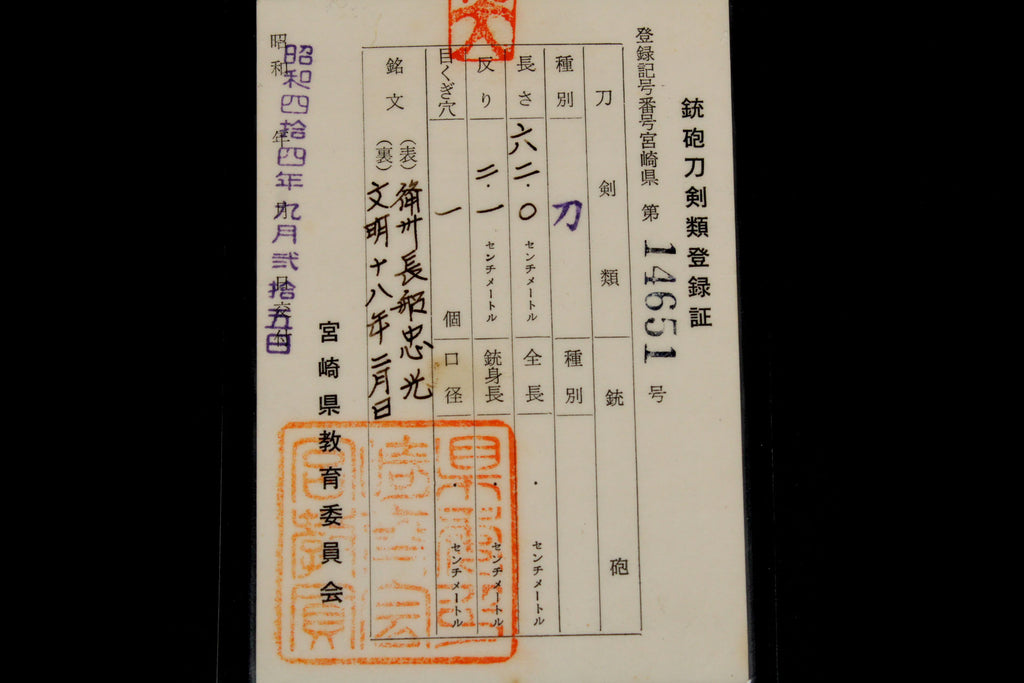 銃砲刀剣類登録証
登録記号番号宮崎県 第 14651 号
刀剣類 銃砲
種別 刀 種別
長さ 六二.〇 センチメートル 全長 . センチメートル
反り 二.一 センチメートル 銃身長 . センチメートル
目くぎ穴 一 個 口径 . センチメートル
銘文 (表) 備州長船忠光
(裏) 文明十八年二月日
宮崎県教育委員会
昭和 年 月 日交付
昭和四拾四年九月弐拾五日